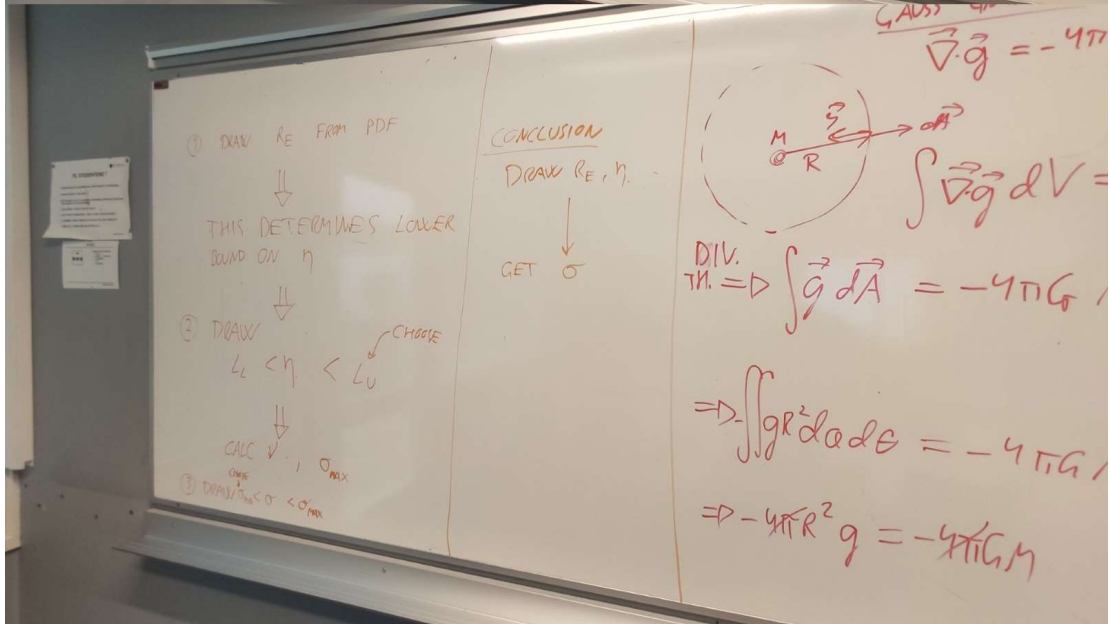 ① DRAW R_E FROM PDF
⇓
THIS DETERMINES LOWER
BOUND ON η
⇓
② DRAW
CHOOSE
L_L < η < L_U
⇓
CALC , σ_MAX
CHOOSE
③ DRAW < σ < σ_MAX
CONCLUSION
DRAW R_E, η.
↓
GET σ
GAUSS
∇⃗·g⃗ = -4π
g⃗ dA⃗
M
R
∫ ∇⃗·g⃗ dV =
DIV.
TH. => ∫ g⃗ dA⃗ = -4πG
=> -∬ gR² dφ dθ = -4πG
=> -4πR² g = -4πGM